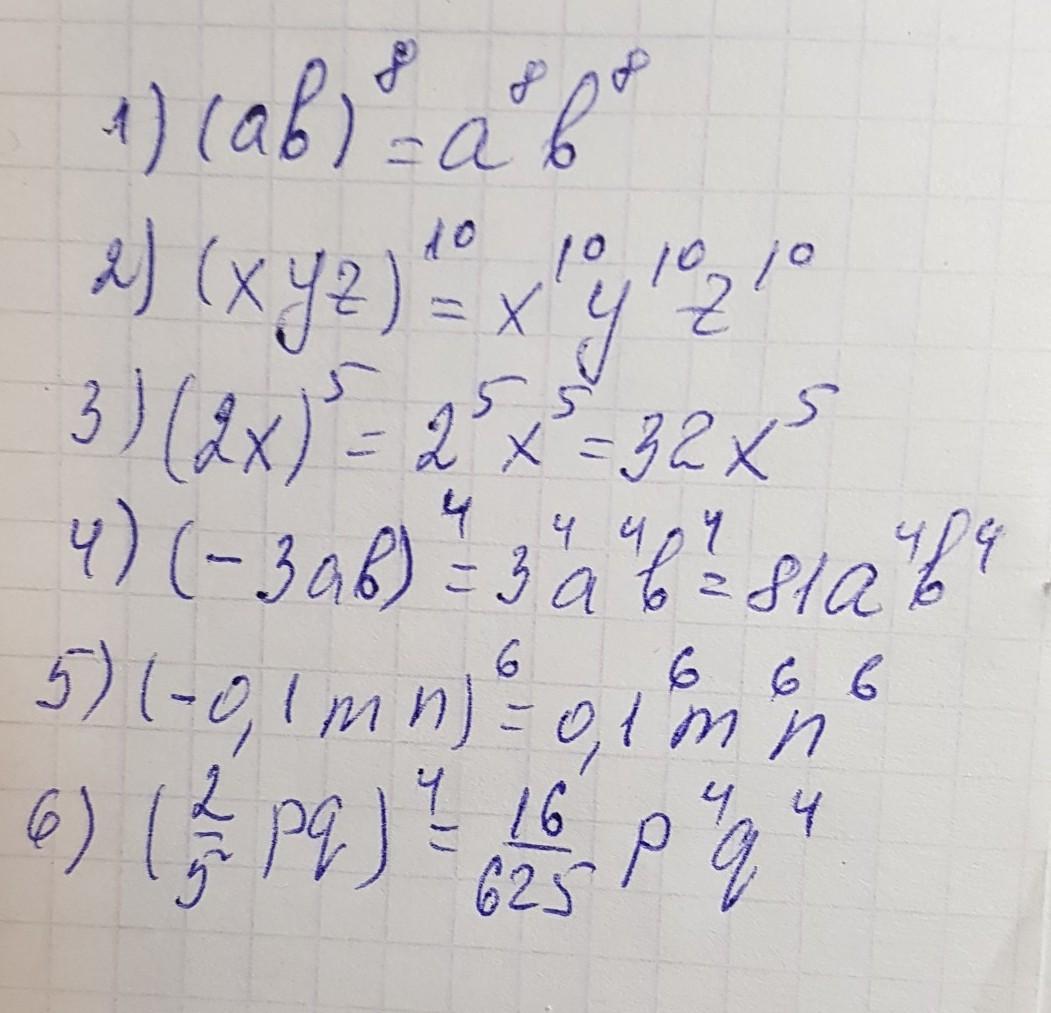 1) (ab)⁸ = a⁸ b⁸
2) (xyz)¹⁰ = x¹⁰ y¹⁰ z¹⁰
3) (2x)⁵ = 2⁵ x⁵ = 32x⁵
4) (-3ab)⁴ = 3⁴ a⁴ b⁴ = 81a⁴b⁴
5) (-0,1mn)⁶ = 0,1⁶ m⁶ n⁶
6) (2/5 pq)⁴ = 16/625 p⁴q⁴